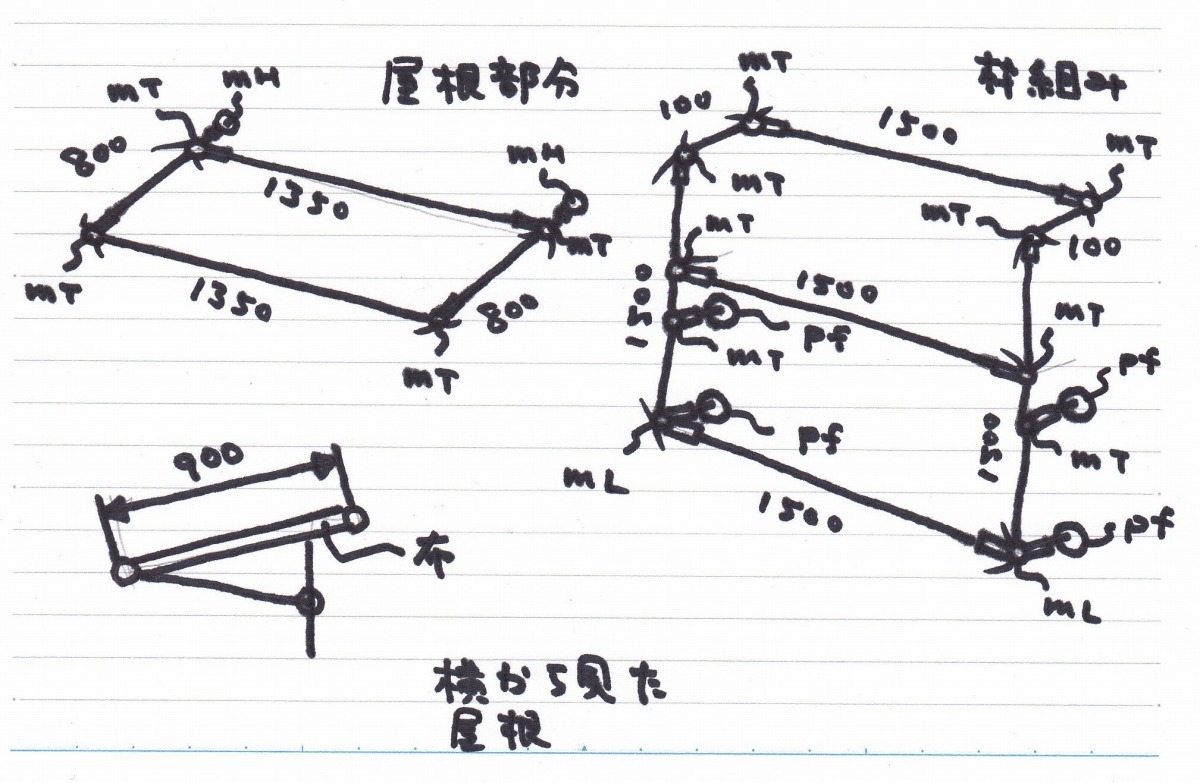 屋根部分
mT
mH
800
1350
mH
mT
mT
1350
800
mT
枠組み
mT
100
1500
mT
mT
mT
mT
100
1500
1500
mT
pf
mT
pf
mL
1500
pf
1500
mT
pf
mL
900
布
横から見た
屋根